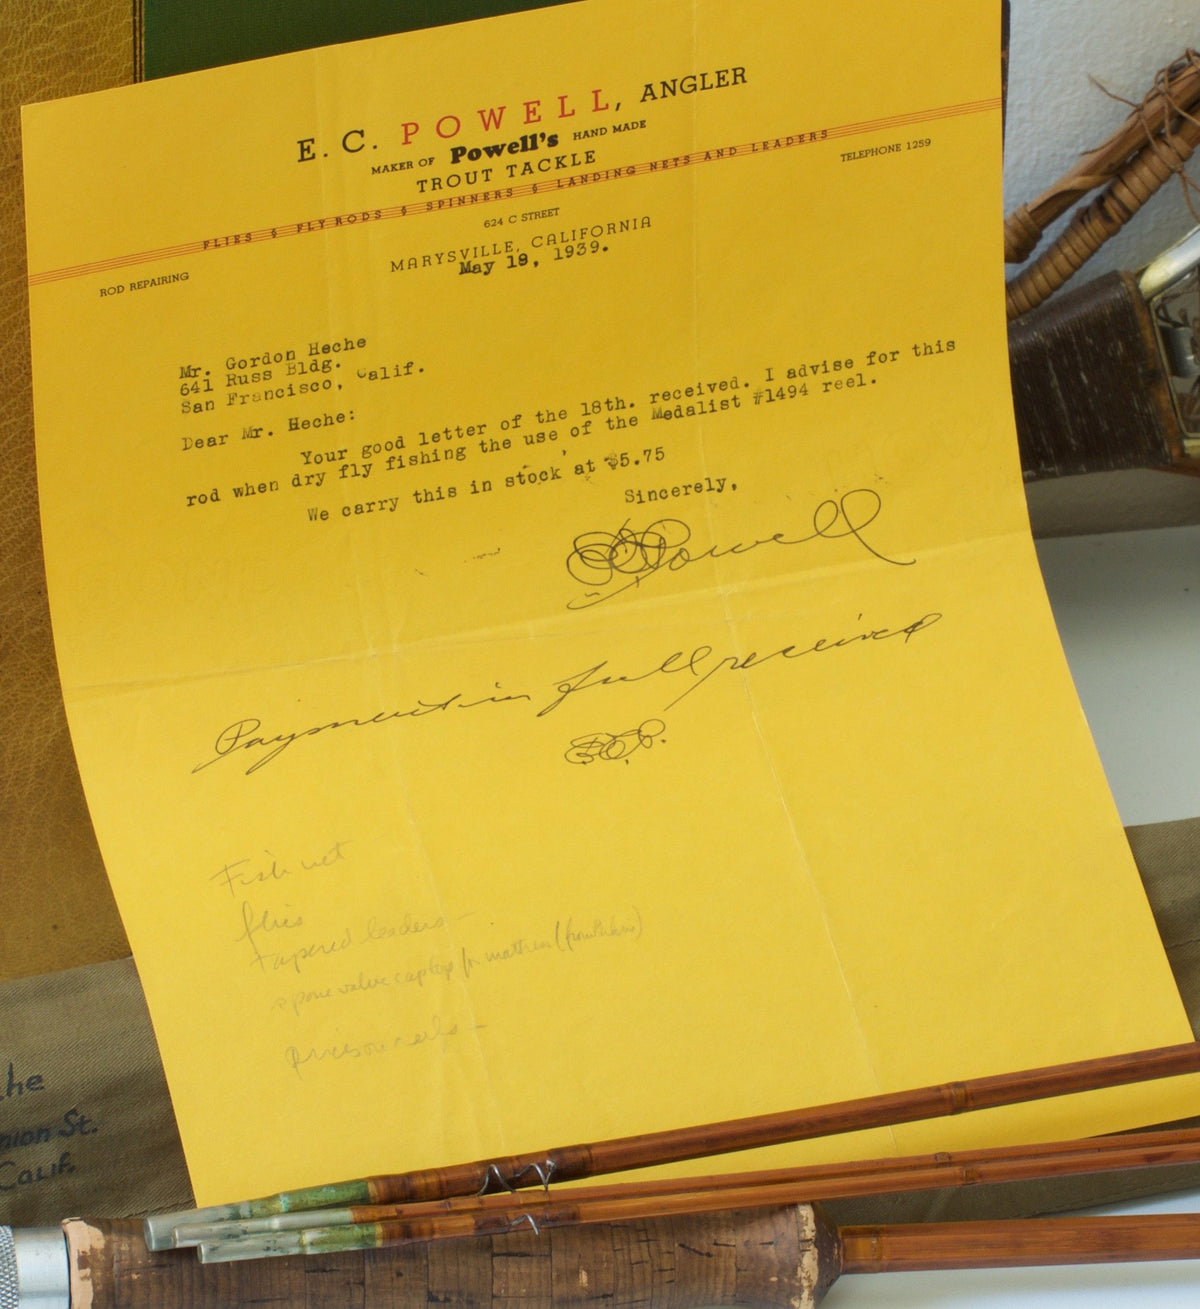 E. C. POWELL, ANGLER
MAKER OF Powell's HAND MADE
TROUT TACKLE
FLIES § FLY RODS § SPINNERS § LANDING NETS AND LEADERS
ROD REPAIRING
624 C STREET
TELEPHONE 1259
MARYSVILLE, CALIFORNIA
May 19, 1939.
Mr. Gordon Heche
641 Russ Bldg.
San Francisco, Calif.
Dear Mr. Heche:
Your good letter of the 18th. received. I advise for this
rod when dry fly fishing the use of the Medalist #1494 reel.
We carry this in stock at $5.75
Sincerely,
E C Powell
Payment in full received
E.C.P.
Fish net
flies
tapered leaders –
for
he
nion St.
Calif.